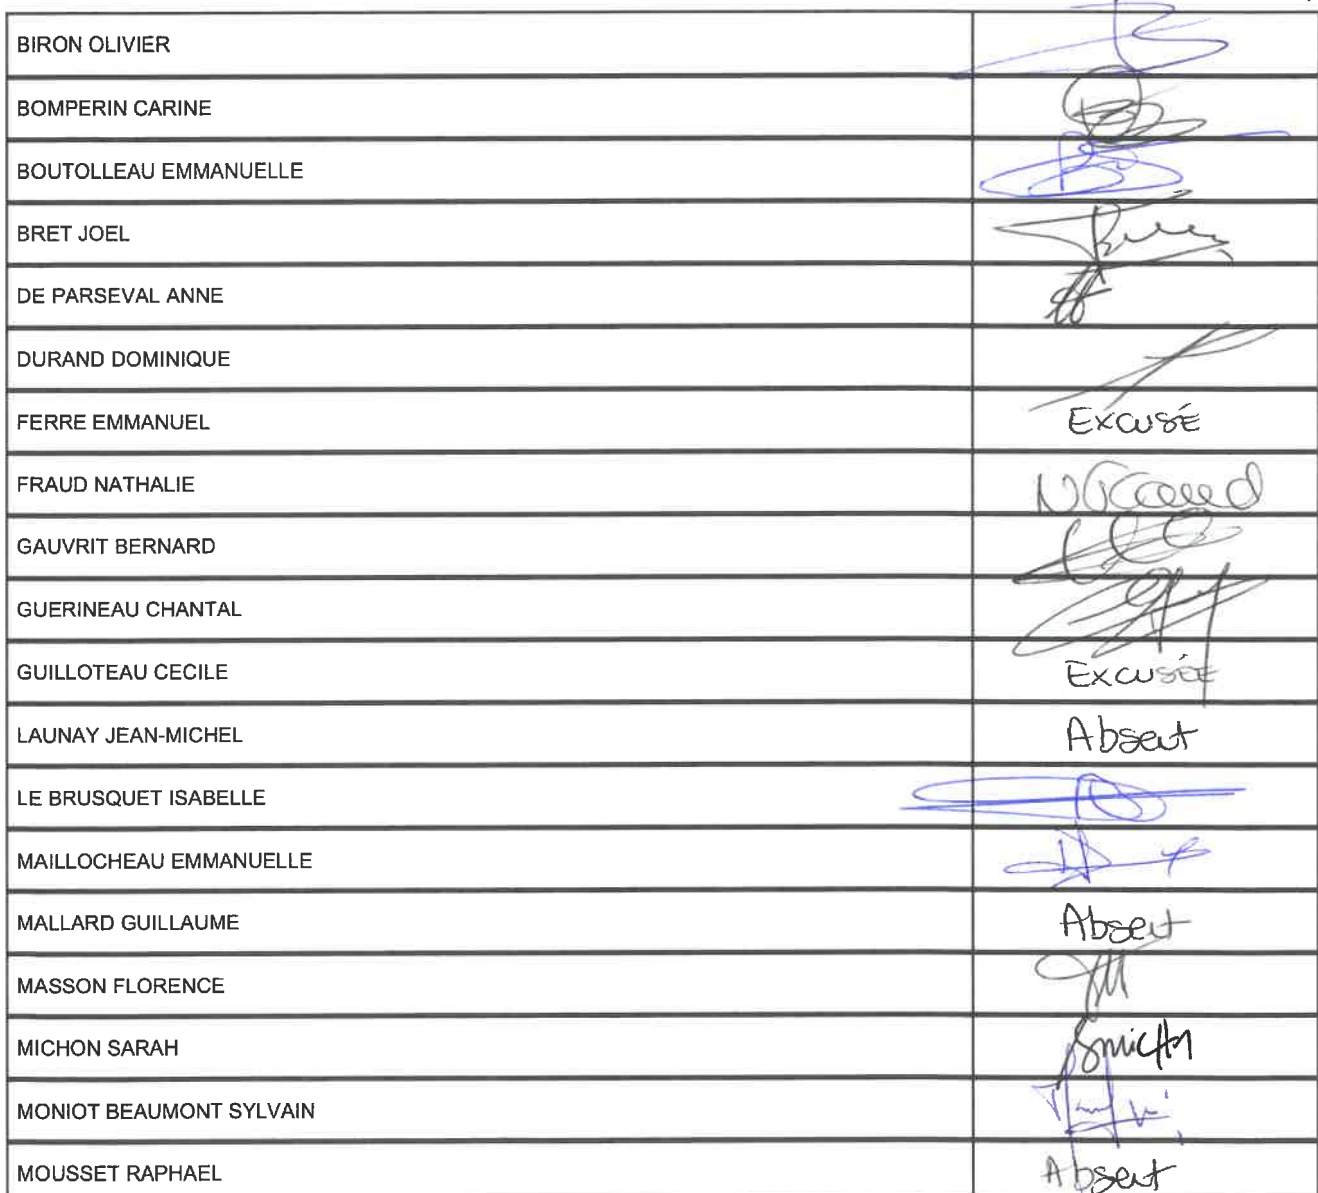 BIRON OLIVIER
BOMPERIN CARINE
BOUTOLLEAU EMMANUELLE
BRET JOEL
DE PARSEVAL ANNE
DURAND DOMINIQUE
FERRE EMMANUEL EXCUSÉ
FRAUD NATHALIE NFraud
GAUVRIT BERNARD
GUERINEAU CHANTAL
GUILLOTEAU CECILE EXCUSÉE
LAUNAY JEAN-MICHEL Absent
LE BRUSQUET ISABELLE
MAILLOCHEAU EMMANUELLE
MALLARD GUILLAUME Absent
MASSON FLORENCE
MICHON SARAH
MONIOT BEAUMONT SYLVAIN
MOUSSET RAPHAEL Absent